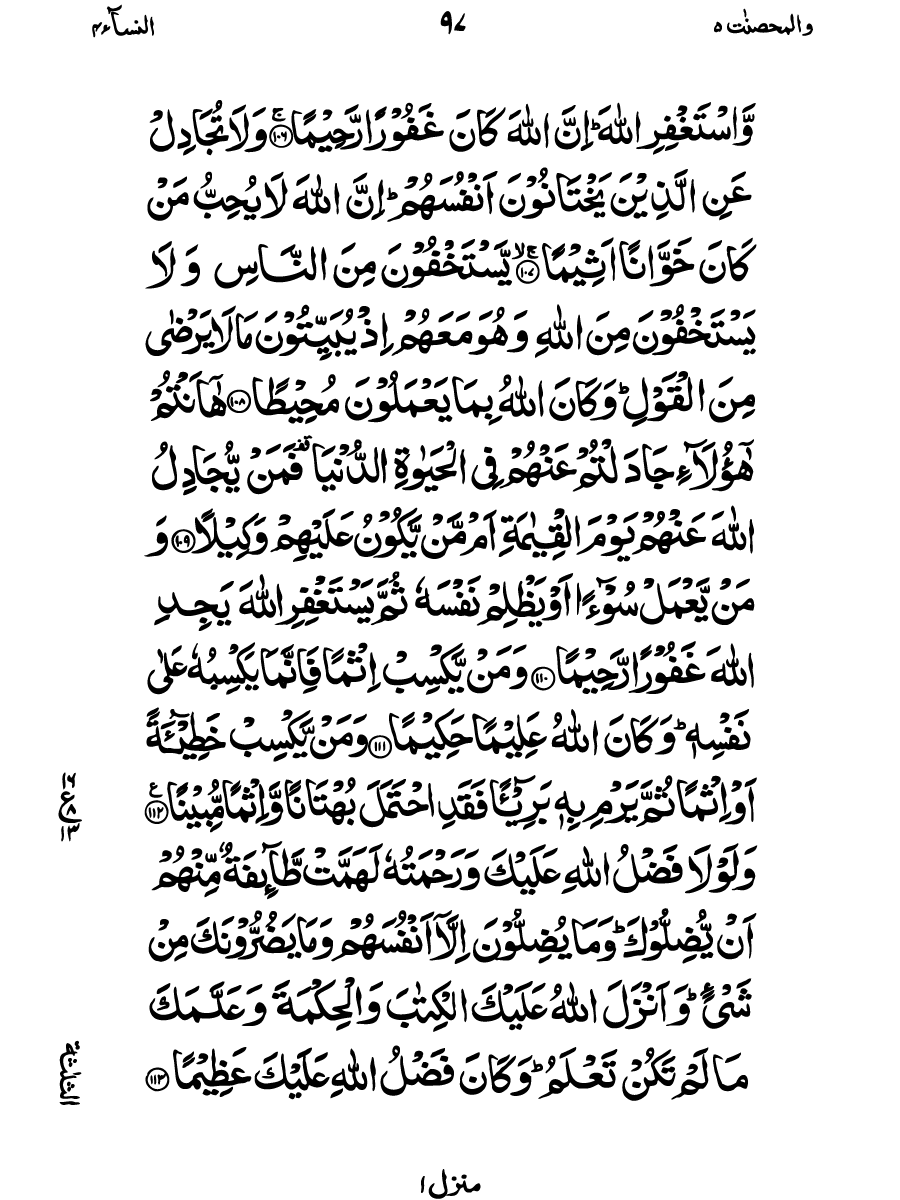 والمحصنت ٥
٩٧
النسآء ٤
وَّاسْتَغْفِرِ اللّٰهَ ؕ اِنَّ اللّٰهَ كَانَ غَفُوْرًا رَّحِيْمًا ۚ﴿۱۰۶﴾ وَلَا تُجَادِلْ
عَنِ الَّذِيْنَ يَخْتَانُوْنَ اَنْفُسَهُمْ ؕ اِنَّ اللّٰهَ لَا يُحِبُّ مَنْ
كَانَ خَوَّانًا اَثِيْمًا ۚۙ﴿۱۰۷﴾ يَّسْتَخْفُوْنَ مِنَ النَّاسِ وَ لَا
يَسْتَخْفُوْنَ مِنَ اللّٰهِ وَ هُوَ مَعَهُمْ اِذْ يُبَيِّتُوْنَ مَا لَا يَرْضٰى
مِنَ الْقَوْلِ ؕ وَكَانَ اللّٰهُ بِمَا يَعْمَلُوْنَ مُحِيْطًا ﴿۱۰۸﴾ هٰۤاَنْتُمْ
هٰۤؤُلَآءِ جَادَلْتُمْ عَنْهُمْ فِي الْحَيٰوةِ الدُّنْيَا ۟ فَمَنْ يُّجَادِلُ
اللّٰهَ عَنْهُمْ يَوْمَ الْقِيٰمَةِ اَمْ مَّنْ يَّكُوْنُ عَلَيْهِمْ وَكِيْلًا ﴿۱۰۹﴾ وَ
مَنْ يَّعْمَلْ سُوْٓءًا اَوْ يَظْلِمْ نَفْسَهٗ ثُمَّ يَسْتَغْفِرِ اللّٰهَ يَجِدِ
اللّٰهَ غَفُوْرًا رَّحِيْمًا ﴿۱۱۰﴾ وَمَنْ يَّكْسِبْ اِثْمًا فَاِنَّمَا يَكْسِبُهٗ عَلٰى
نَفْسِهٖ ؕ وَكَانَ اللّٰهُ عَلِيْمًا حَكِيْمًا ﴿۱۱۱﴾ وَمَنْ يَّكْسِبْ خَطِيْٓئَةً
اَوْ اِثْمًا ثُمَّ يَرْمِ بِهٖ بَرِيْٓـًٔا فَقَدِ احْتَمَلَ بُهْتَانًا وَّاِثْمًا مُّبِيْنًا ﴿۱۱۲﴾ ع
وَلَوْلَا فَضْلُ اللّٰهِ عَلَيْكَ وَرَحْمَتُهٗ لَهَمَّتْ طَّآئِفَةٌ مِّنْهُمْ
اَنْ يُّضِلُّوْكَ ؕ وَمَا يُضِلُّوْنَ اِلَّاۤ اَنْفُسَهُمْ وَمَا يَضُرُّوْنَكَ مِنْ
شَيْءٍ ؕ وَ اَنْزَلَ اللّٰهُ عَلَيْكَ الْكِتٰبَ وَالْحِكْمَةَ وَعَلَّمَكَ
مَا لَمْ تَكُنْ تَعْلَمُ ؕ وَكَانَ فَضْلُ اللّٰهِ عَلَيْكَ عَظِيْمًا ﴿۱۱۳﴾
الثلٰثة
منزل ۱